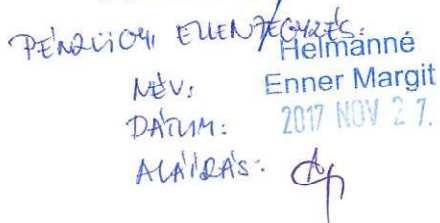 PÉNZÜGYI ELLENJEGYZÉS:
Helmánné
NÉV: Enner Margit
DÁTUM: 2017 NOV 27.
ALÁÍRÁS: